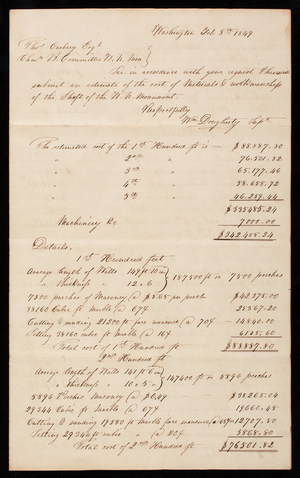 Washington Feb 8th 1849
Thos Carbery Esqr
Chmn B. Committee W. N. Mon
Sir in accordance with your request I herewith
submit an estimate of the cost of Materials & workmanship
of the Shaft of the W. N. Monument.
Respectfully
Wm Dougherty Supt
The estimated cost of the 1st Hundred ft is — $88887.80
2nd " 76.501.82
3rd " 65.177.46
4th " 58.688.72
5th " 46.229.44
$335485.24
Machinery &c 7000.00
$342485.24
Details.
1st Hundred feet
Average length of Walls 149 ft 10 in
" Thickness " 12.6 187300 ft or 7300 perches
7300 perches of Masonry @ $5.65 per perch $42375.00
38160 Cube ft Marble @ 67¢ 25567.20
Cutting & sanding 21200 ft face measure @ 70¢ 14840.00
Setting 38160 cube ft Marble @ 16¢ 6105.60
Total cost of 1st Hundred ft $88887.80
2nd Hundred ft
Average length of Walls 141 ft 6 in
" Thickness " 10.5 147400 ft or 5896 perches
5896 Perches Masonry @ $6.69
29344 Cube ft Marble @ 67¢ 19660.48
Cutting & sanding
Setting 29344 ft cube @ 20¢ 5868.80
Total cost of 2nd Hundred ft $76501.82